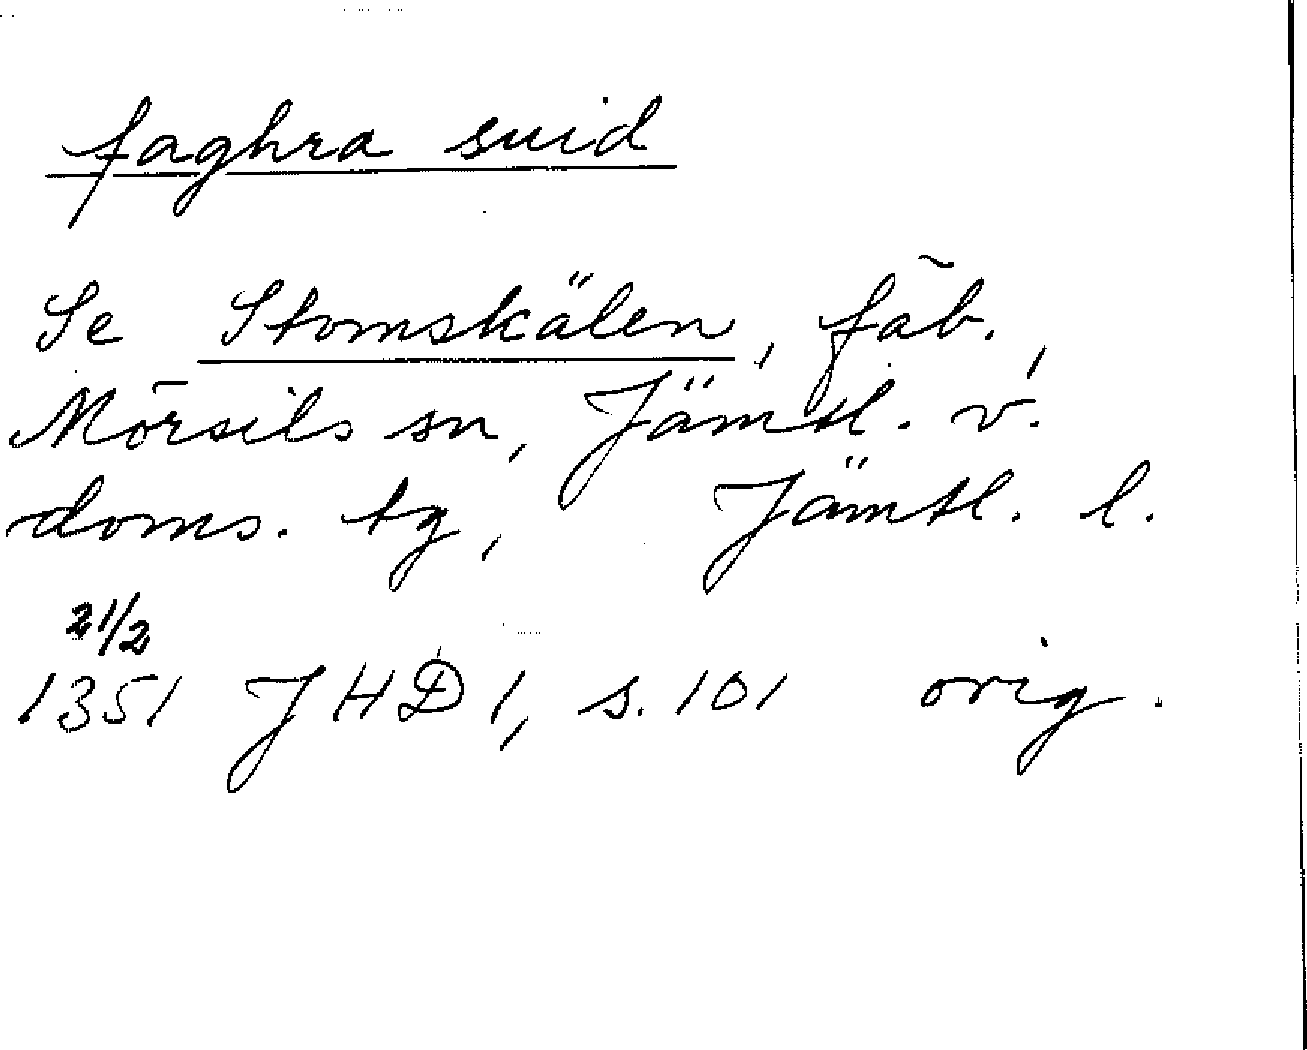 faghra suid
Se Stomskälen, fäb.,
Mörsils sn, Jämtl. v.
doms. tg, Jämtl. l.
21/2
1351 JHD 1, s. 101 orig.